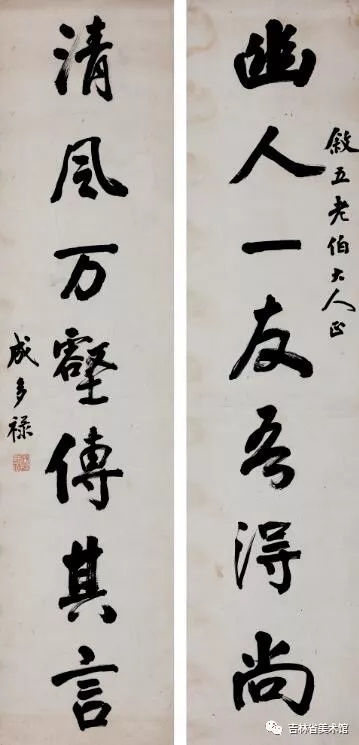 敘五老伯大人正
幽人一友吾得尚
清風万壑傳其言
成多禄
吉林省美术馆